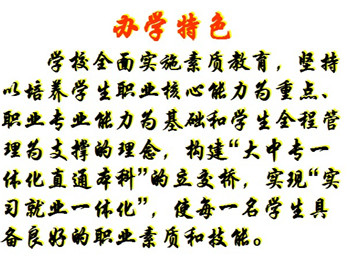 办学特色
学校全面实施素质教育，坚持
以培养学生职业核心能力为重点、
职业专业能力为基础和学生全程管
理为支撑的理念，构建“大中专一
体化直通本科”的立交桥，实现“实
习就业一体化”，使每一名学生具
备良好的职业素质和技能。